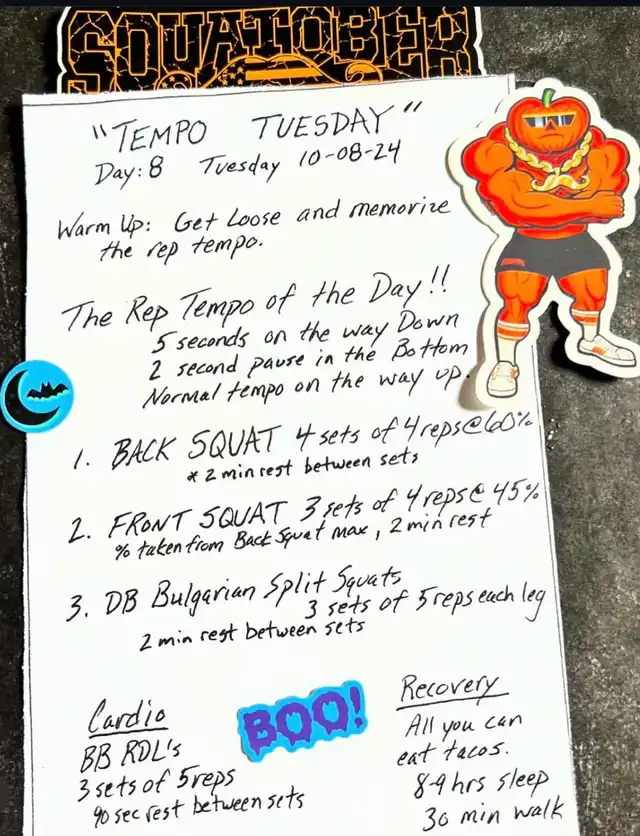 SQUATOBER
"TEMPO TUESDAY"
Day: 8 Tuesday 10-08-24
Warm Up: Get Loose and memorize
the rep tempo.
The Rep Tempo of the Day!!
5 seconds on the way Down
2 second pause in the Bottom
Normal tempo on the way up.
1. BACK SQUAT 4 sets of 4 reps @ 60%
* 2 min rest between sets
2. FRONT SQUAT 3 sets of 4 reps @ 45%
% taken from Back Squat max, 2 min rest
3. DB Bulgarian Split Squats
3 sets of 5 reps each leg
2 min rest between sets
Cardio
BB RDL's
3 sets of 5 reps
90 sec rest between sets
BOO!
Recovery
All you can
eat tacos.
8-9 hrs sleep
30 min walk